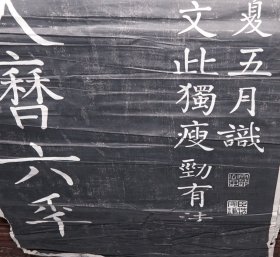 夏五月識
文此獨瘦勁有法
大曆六年